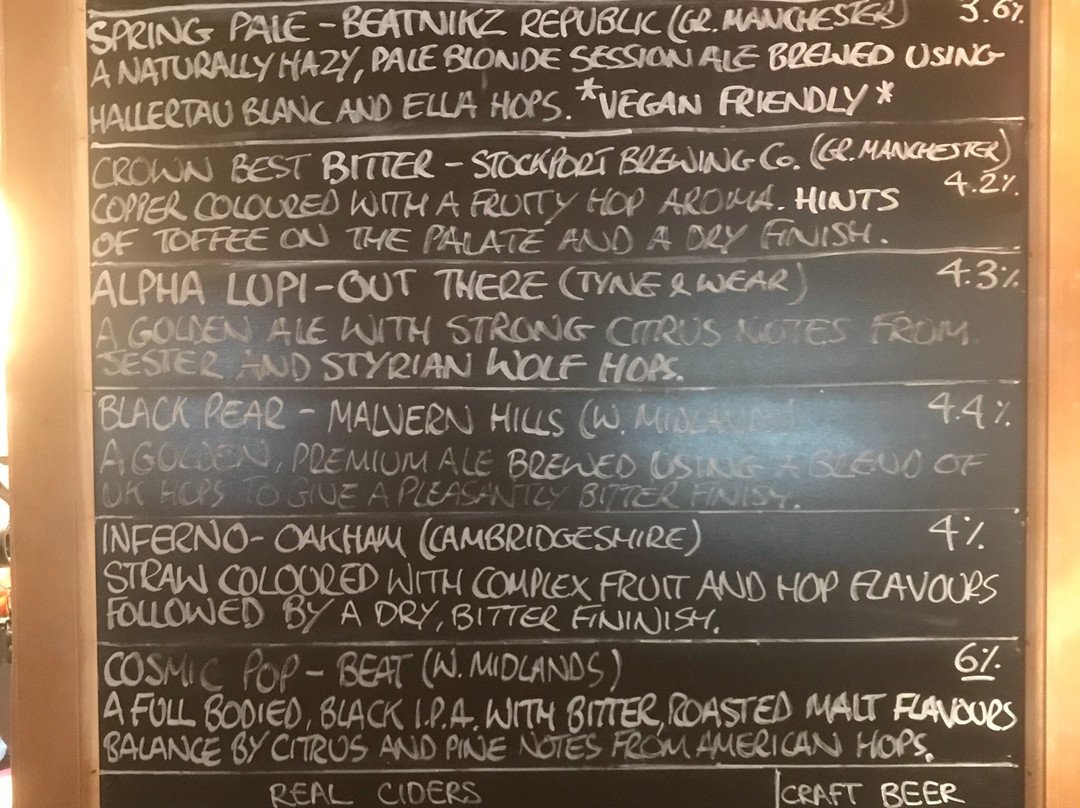 SPRING PALE - BEATNIKZ REPUBLIC (GR. MANCHESTER) 3.6%
A NATURALLY HAZY, PALE BLONDE SESSION ALE BREWED USING
HALLERTAU BLANC AND ELLA HOPS. *VEGAN FRIENDLY*
CROWN BEST BITTER - STOCKPORT BREWING Co. (GR. MANCHESTER)
4.2%
COPPER COLOURED WITH A FRUITY HOP AROMA. HINTS
OF TOFFEE ON THE PALATE AND A DRY FINISH.
ALPHA LUPI - OUT THERE (TYNE & WEAR) 4.3%
A GOLDEN ALE WITH STRONG CITRUS NOTES FROM
JESTER AND STYRIAN WOLF HOPS.
BLACK PEAR - MALVERN HILLS (W. MIDLANDS) 4.4%
A GOLDEN, PREMIUM ALE BREWED USING A BLEND OF
UK HOPS TO GIVE A PLEASANTLY BITTER FINISH.
INFERNO - OAKHAM (CAMBRIDGESHIRE) 4%
STRAW COLOURED WITH COMPLEX FRUIT AND HOP FLAVOURS
FOLLOWED BY A DRY, BITTER FININISH.
COSMIC POP - BEAT (W. MIDLANDS) 6%
A FULL BODIED, BLACK I.P.A. WITH BITTER, ROASTED MALT FLAVOURS
BALANCE BY CITRUS AND PINE NOTES FROM AMERICAN HOPS.
REAL CIDERS CRAFT BEER